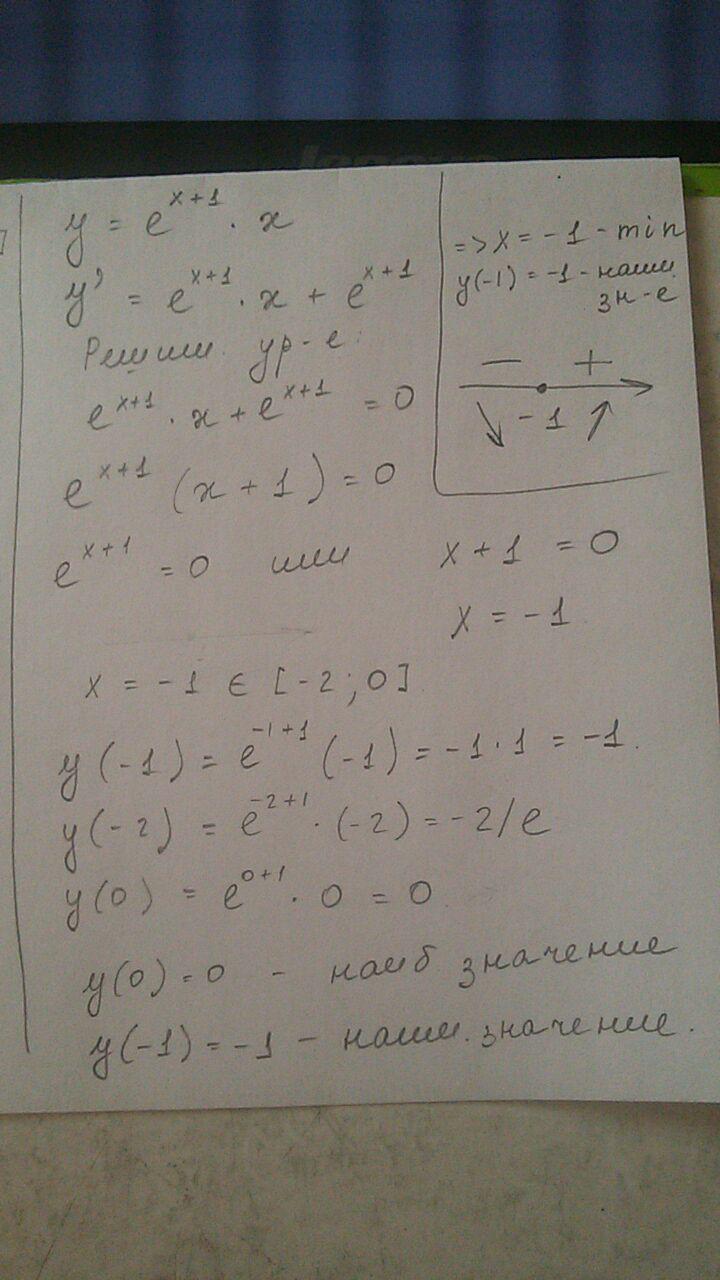 y = e^{x+1} · x
y' = e^{x+1} · x + e^{x+1}
Решим ур-е:
e^{x+1} · x + e^{x+1} = 0
e^{x+1} (x + 1) = 0
e^{x+1} = 0 или x + 1 = 0
x = -1
x = -1 ∈ [-2; 0]
y(-1) = e^{-1+1} (-1) = -1 · 1 = -1.
y(-2) = e^{-2+1} · (-2) = -2/e
y(0) = e^{0+1} · 0 = 0
y(0) = 0 - наиб значение
y(-1) = -1 - наим. значение.
=> x = -1 - min
y(-1) = -1 - наим.
зн-е
- +
-1